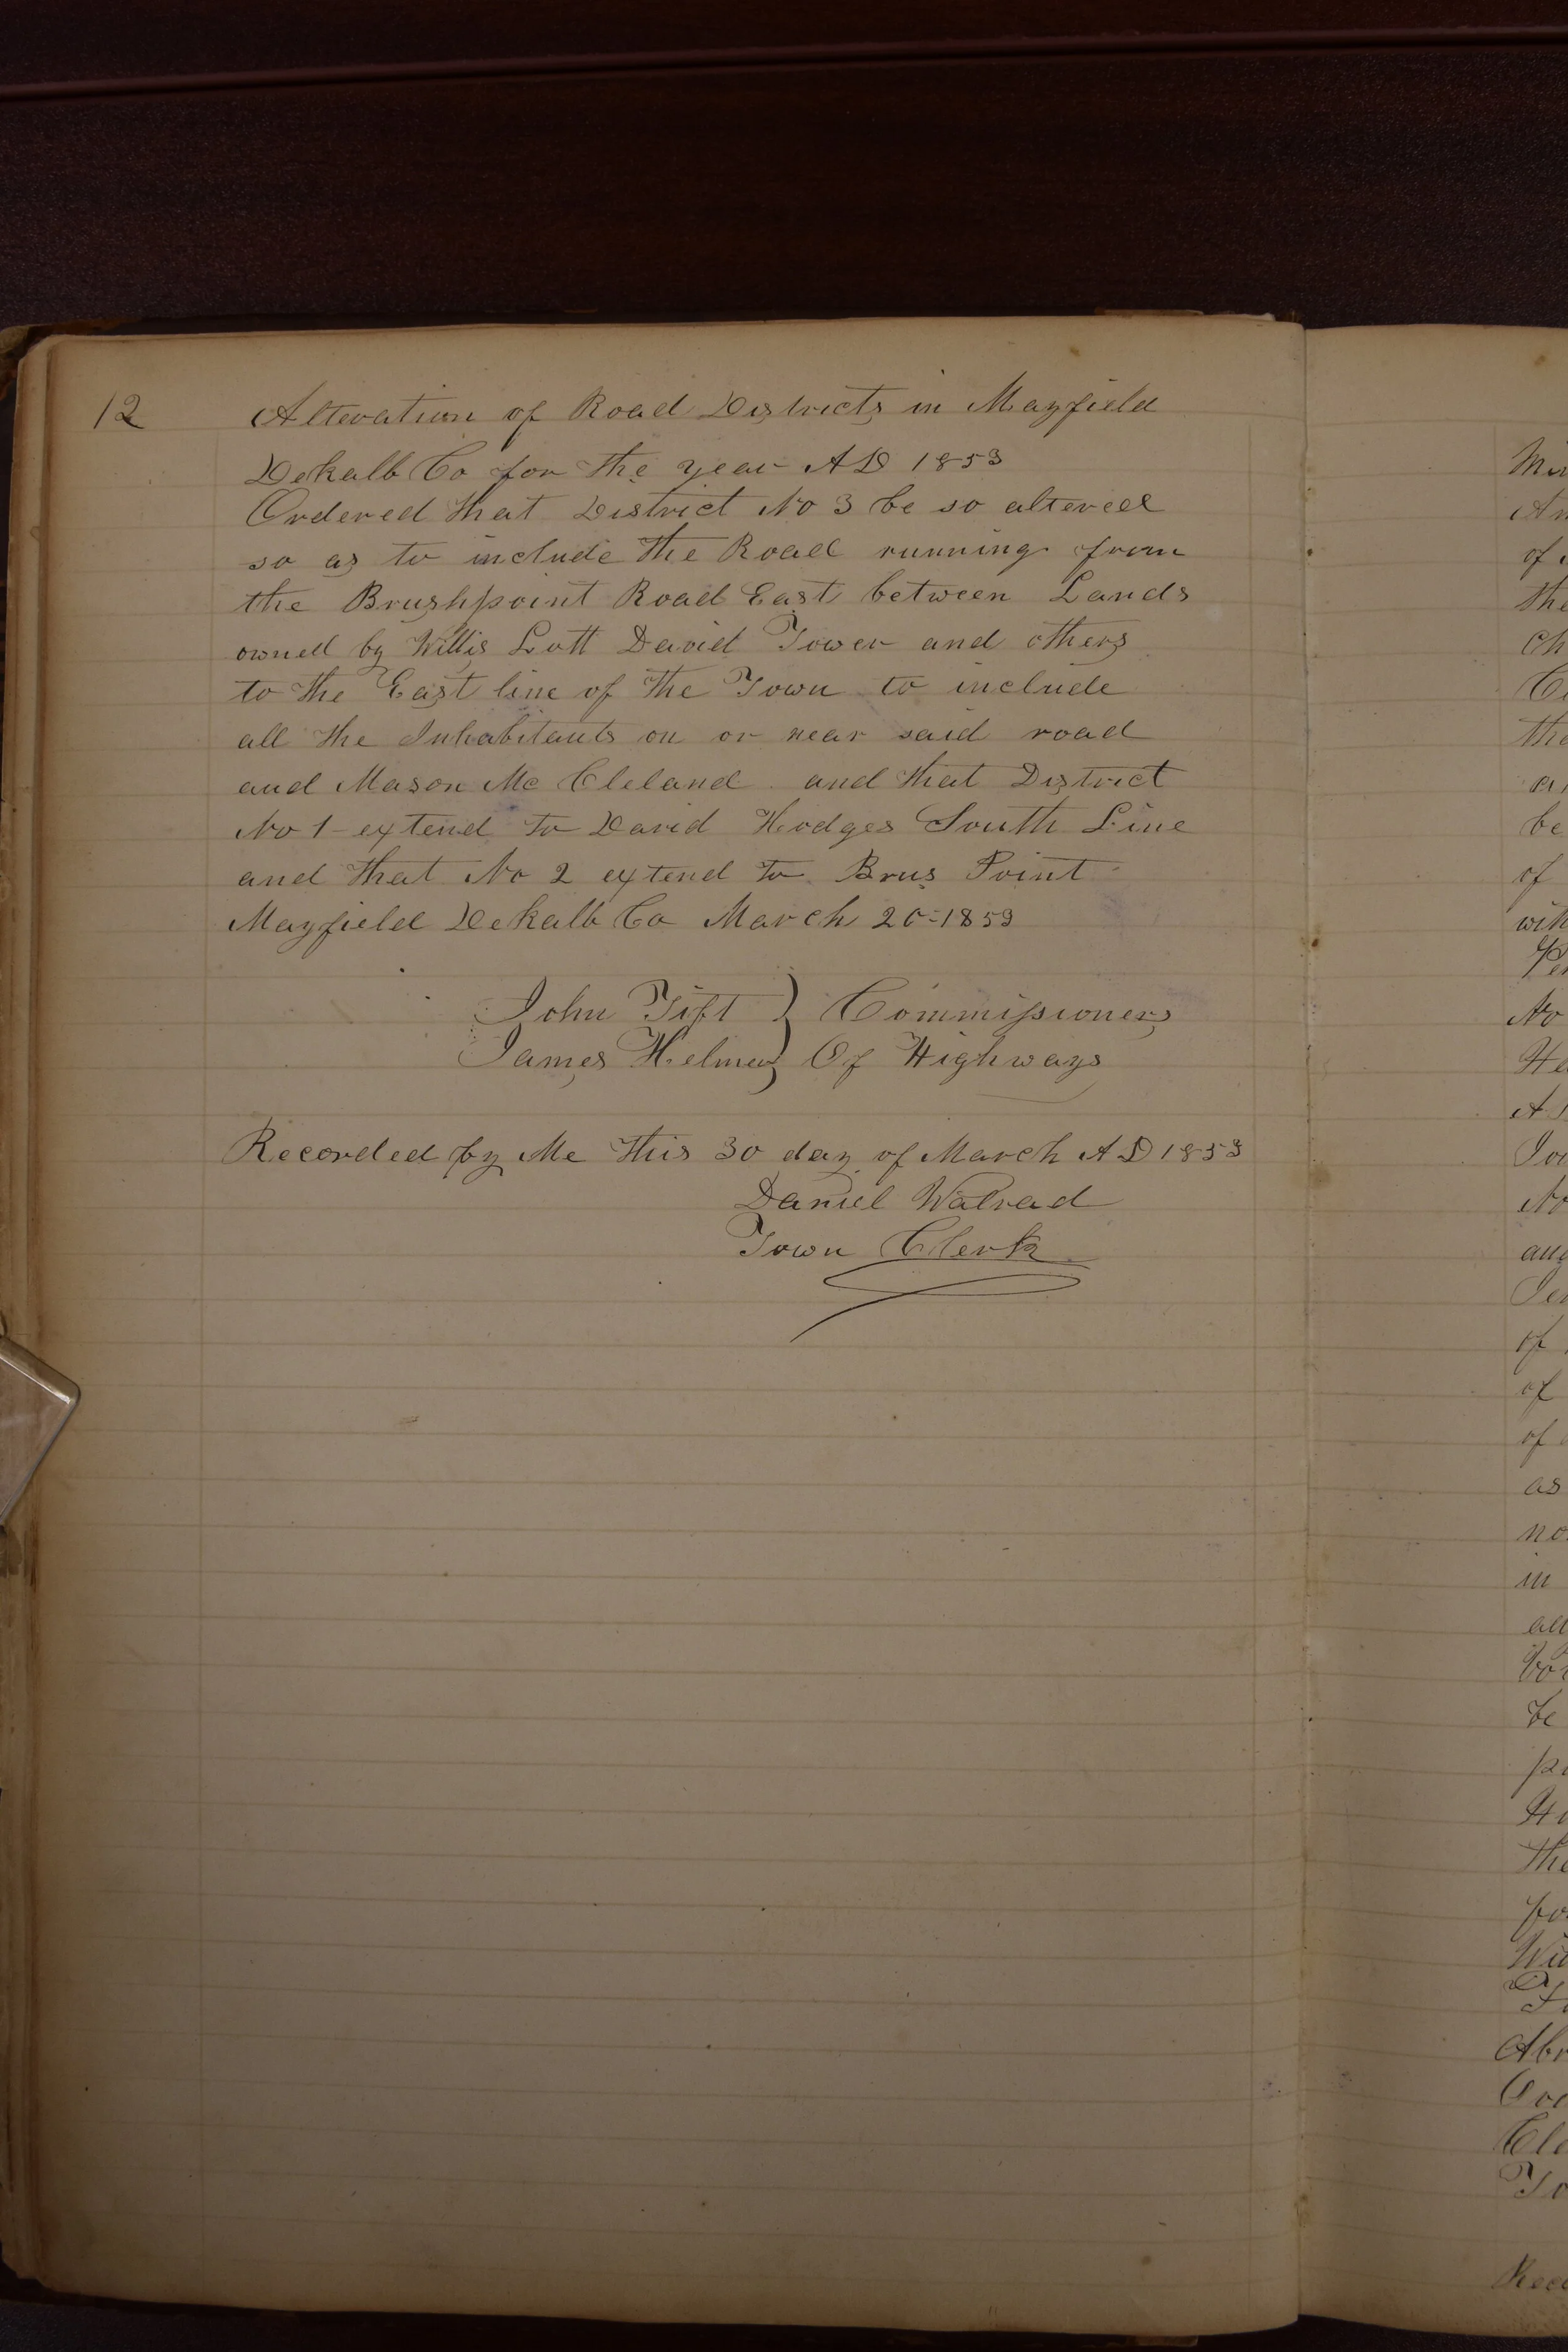 12 Alteration of Road Districts in Mayfield
Dekalb Co for the year AD 1853
Ordered that District No 3 be so altered
so as to include the Road running from
the Brushpoint Road East between Lands
owned by Willis Lott David Tower and others
to the East line of the Town to include
all the Inhabitants on or near said road
and Mason Mc Cleland and that District
No 1 extend to David Hodges South Line
and that No 2 extend to Brus Point
Mayfield Dekalb Co March 26=1853
John Tift } Commissioners
James Helmer } Of Highways
Recorded by Me this 30 day of March AD 1853
Daniel Walrad
Town Clerk
of
the
be
of
No
of
of
as
in
be